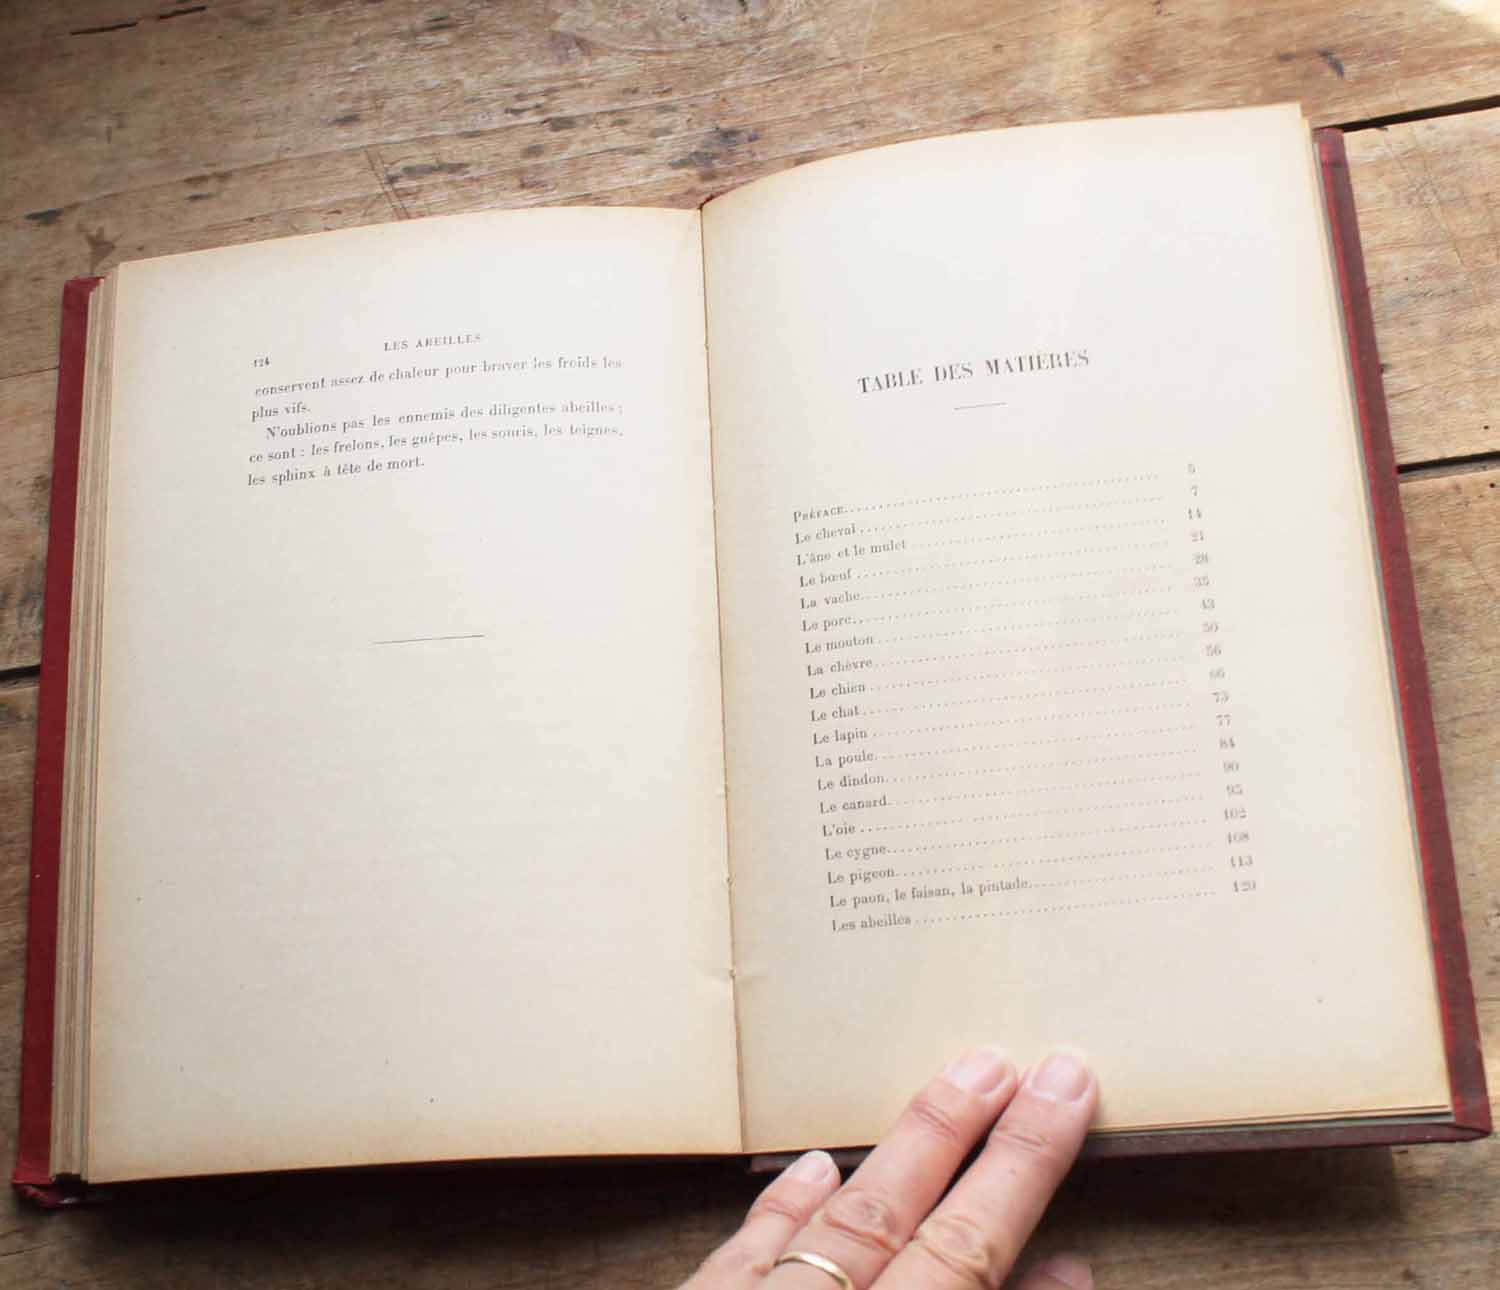 124
LES ABEILLES
conservent assez de chaleur pour braver les froids les
plus vifs.
N'oublions pas les ennemis des diligentes abeilles;
ce sont : les frelons, les guêpes, les souris, les teignes,
les sphinx à tête de mort.
TABLE DES MATIÈRES
PRÉFACE 5
Le cheval 7
L'âne et le mulet 14
Le bœuf 21
La vache 28
Le porc 35
Le mouton 43
La chèvre 50
Le chien 56
Le chat 66
Le lapin 73
La poule 77
Le dindon 84
Le canard 90
L'oie 95
Le cygne 102
Le pigeon 108
Le paon, le faisan, la pintade 113
Les abeilles 120